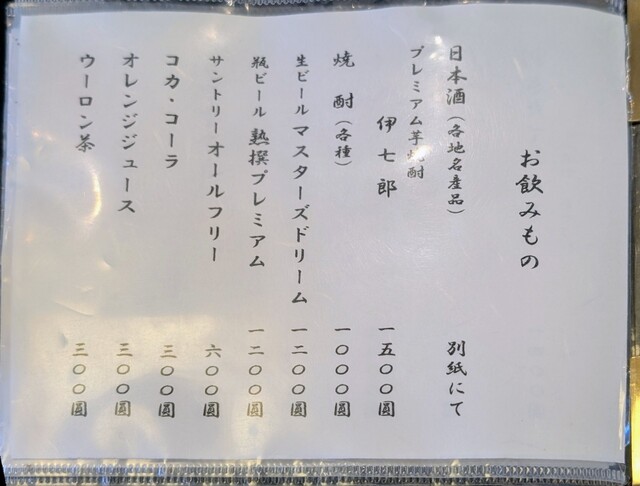 お飲みもの
日本酒（各地名産品） 別紙にて
プレミアム芋焼酎
伊七郎 一五〇〇圓
焼酎（各種） 一〇〇〇圓
生ビール マスターズドリーム 一二〇〇圓
瓶ビール 熟撰プレミアム 一二〇〇圓
サントリーオールフリー 六〇〇圓
コカ・コーラ 三〇〇圓
オレンジジュース 三〇〇圓
ウーロン茶 三〇〇圓